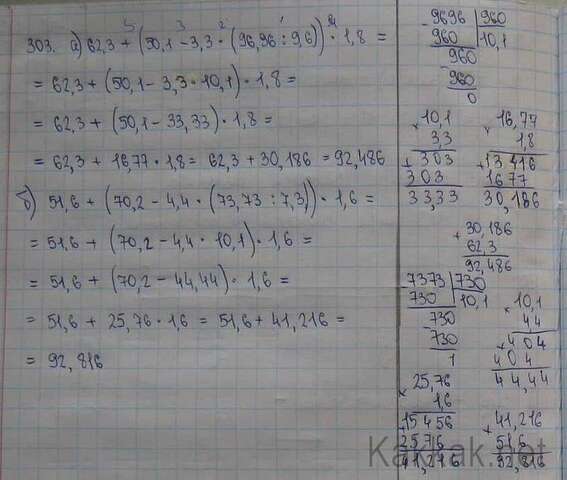 5 3 2 1 4
303. а) 62,3 + (50,1 - 3,3 · (96,96 : 9,6)) · 1,8 =
= 62,3 + (50,1 - 3,3 · 10,1) · 1,8 =
= 62,3 + (50,1 - 33,33) · 1,8 =
= 62,3 + 16,77 · 1,8 = 62,3 + 30,186 = 92,486
б) 51,6 + (70,2 - 4,4 · (73,73 : 7,3)) · 1,6 =
= 51,6 + (70,2 - 4,4 · 10,1) · 1,6 =
= 51,6 + (70,2 - 44,44) · 1,6 =
= 51,6 + 25,76 · 1,6 = 51,6 + 41,216 =
= 92,816
- 9696 | 960
960 | 10,1
- 960
960
0
× 10,1
3,3
+ 303
303
33,33
× 16,77
1,8
+ 13416
1677
30,186
+ 30,186
62,3
92,486
- 7373 | 730
730 | 10,1
- 730
730
1
× 10,1
44
+ 404
404
44,44
× 25,76
1,6
+ 15456
2576
41,216
+ 41,216
51,6
92,816
KakNak.net